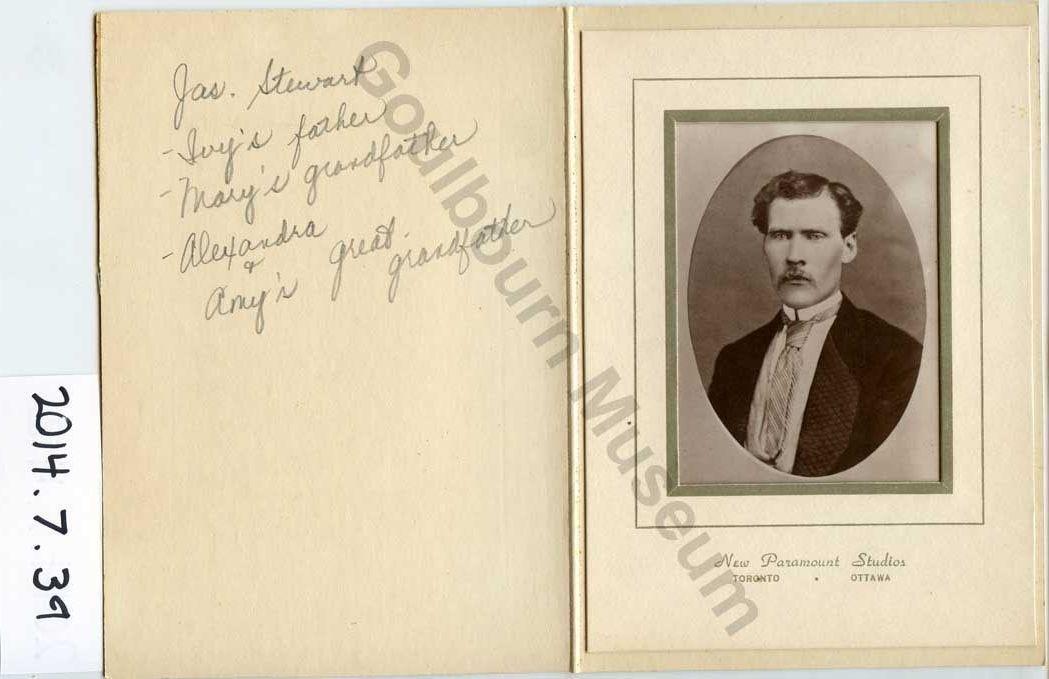 Jas. Stewart
- Ivy's father
- Mary's grandfather
- Alexandra
+
Amy's great. grandfather
2014.7.39
New Paramount Studios
TORONTO • OTTAWA
Goulbourn Museum